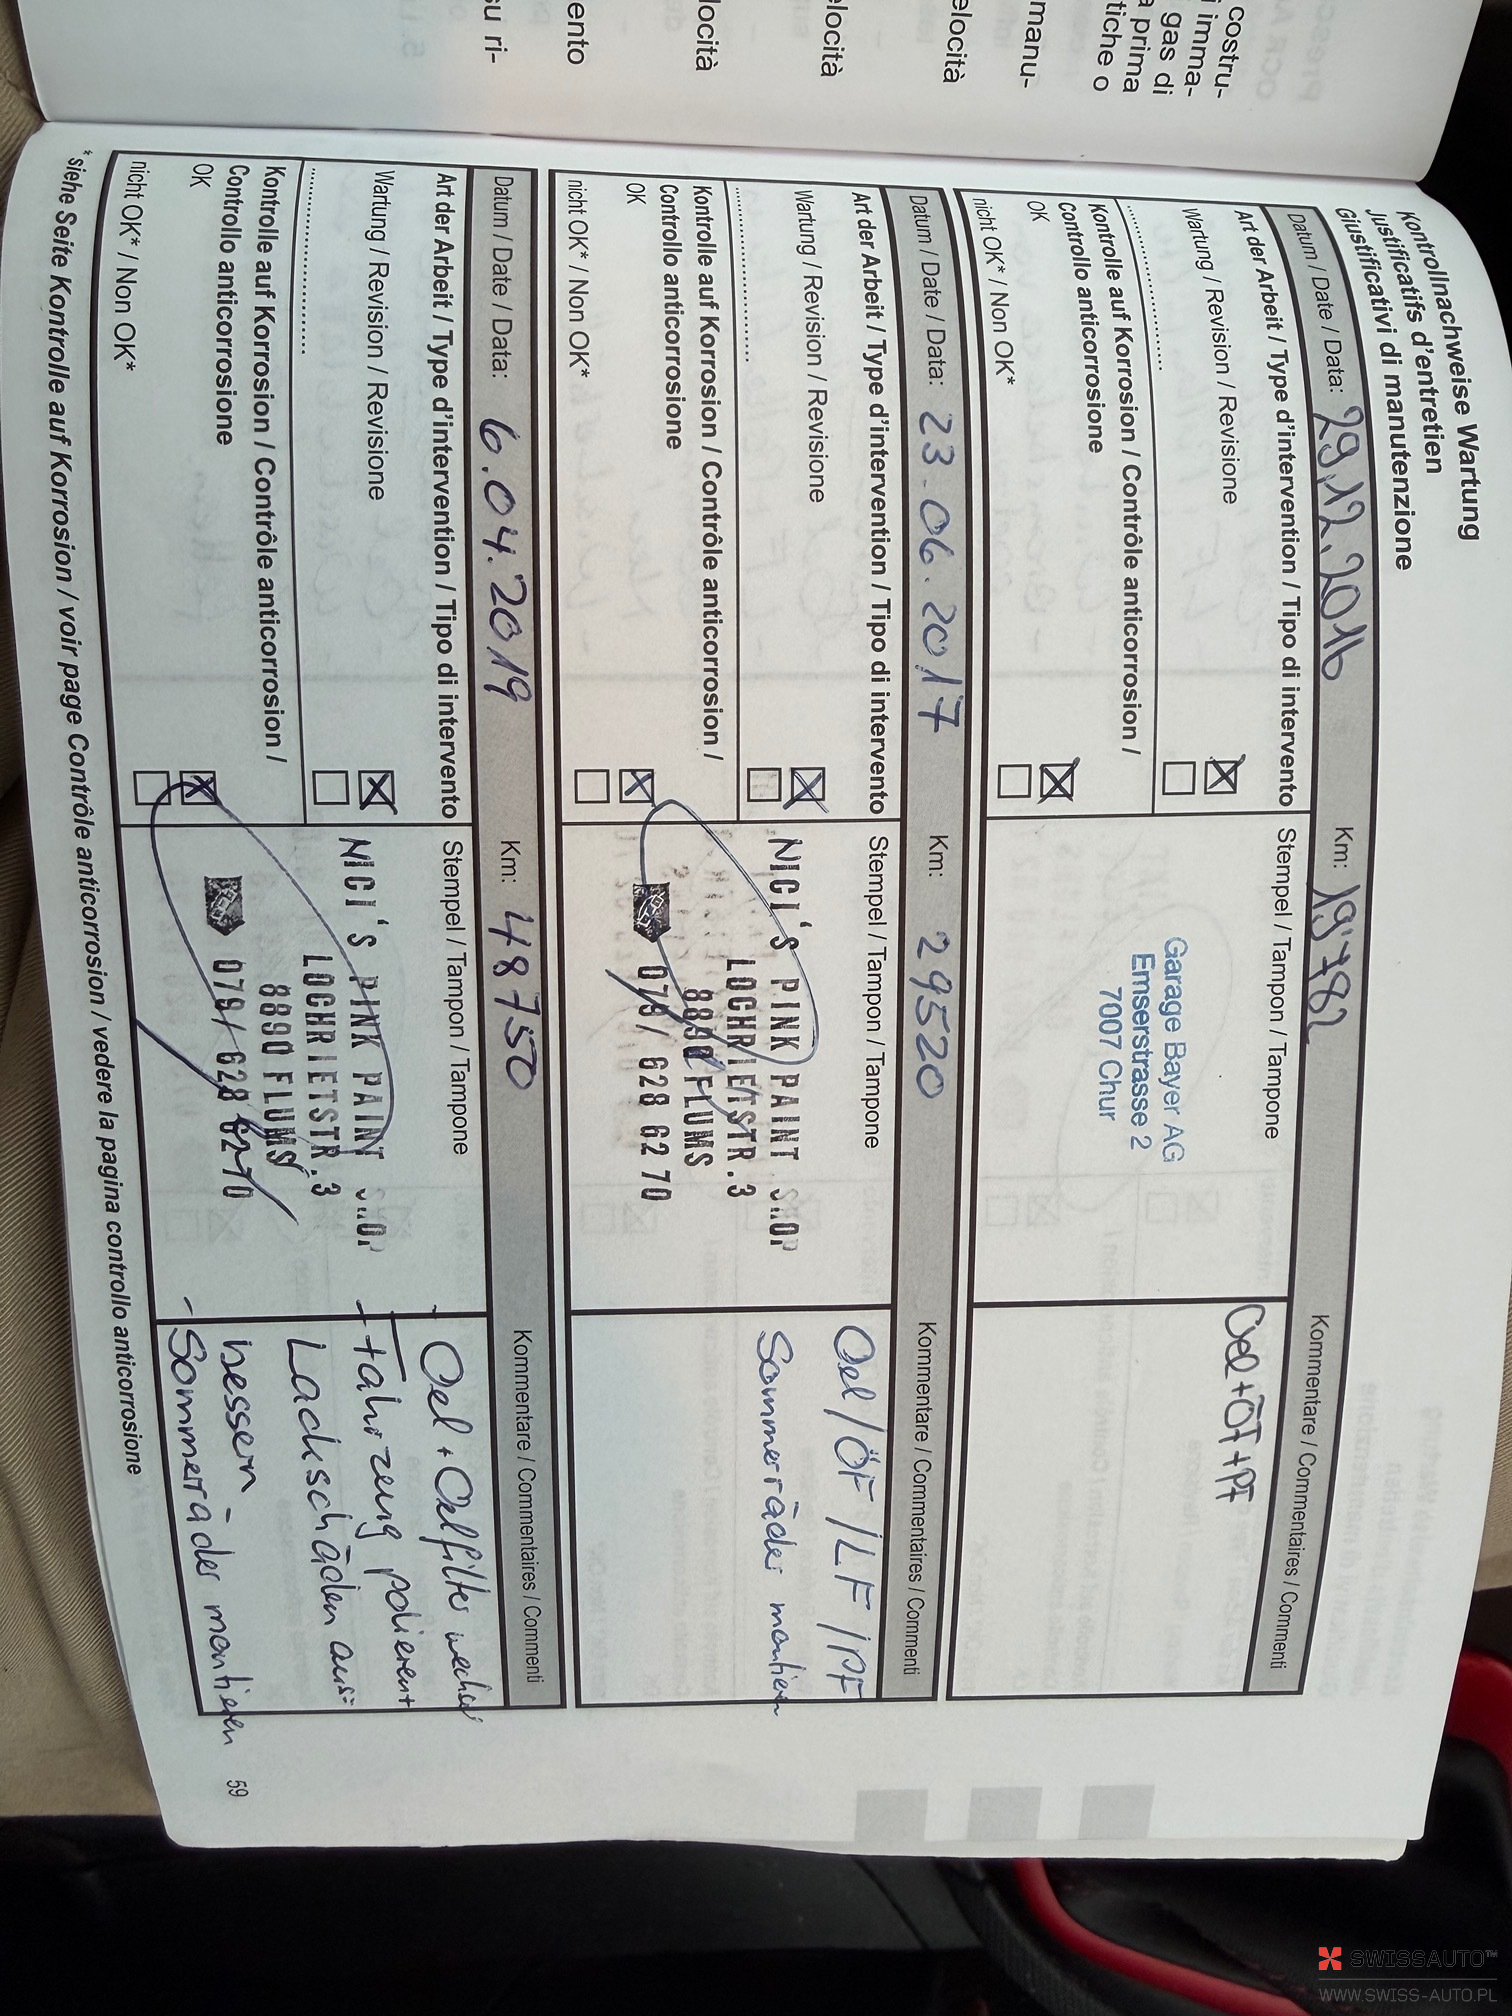 costru-
i imma-
gas di
a prima
tiche o
manu-
elocità
elocità
locità
ento
su ri-
Kontrollnachweise Wartung
Justificatifs d'entretien
Giustificativi di manutenzione
Datum / Date / Data: 29.12.2016 Km: 19'782 Kommentare / Commentaires / Commenti
Art der Arbeit / Type d'intervention / Tipo di intervento
Wartung / Revision / Revisione
Kontrolle auf Korrosion / Contrôle anticorrosion /
Controllo anticorrosione
OK
nicht OK* / Non OK*
Stempel / Tampon / Tampone
Garage Bayer AG
Emserstrasse 2
7007 Chur
Oel + ÖF + PF
Datum / Date / Data: 23.06.2017 Km: 29520 Kommentare / Commentaires / Commenti
Art der Arbeit / Type d'intervention / Tipo di intervento
Wartung / Revision / Revisione
Kontrolle auf Korrosion / Contrôle anticorrosion /
Controllo anticorrosione
OK
nicht OK* / Non OK*
Stempel / Tampon / Tampone
NICI'S PINK PAINT SHOP
LOCHRIETSTR.3
8890 FLUMS
079/ 628 62 70
Oel / ÖF / LF / PF
Sommerräder montieren
Datum / Date / Data: 6.04.2019 Km: 48750 Kommentare / Commentaires / Commenti
Art der Arbeit / Type d'intervention / Tipo di intervento
Wartung / Revision / Revisione
Kontrolle auf Korrosion / Contrôle anticorrosion /
Controllo anticorrosione
OK
nicht OK* / Non OK*
Stempel / Tampon / Tampone
NICI'S PINK PAINT SHOP
LOCHRIETSTR.3
8890 FLUMS
079/ 628 62 70
- Oel + Oelfilter
- Fahrzeug polieren +
Lackschäden aus=
bessern
- Sommerräder montieren
* siehe Seite Kontrolle auf Korrosion / voir page Contrôle anticorrosion / vedere la pagina controllo anticorrosione
59
SWISSAUTO™
WWW.SWISS-AUTO.PL